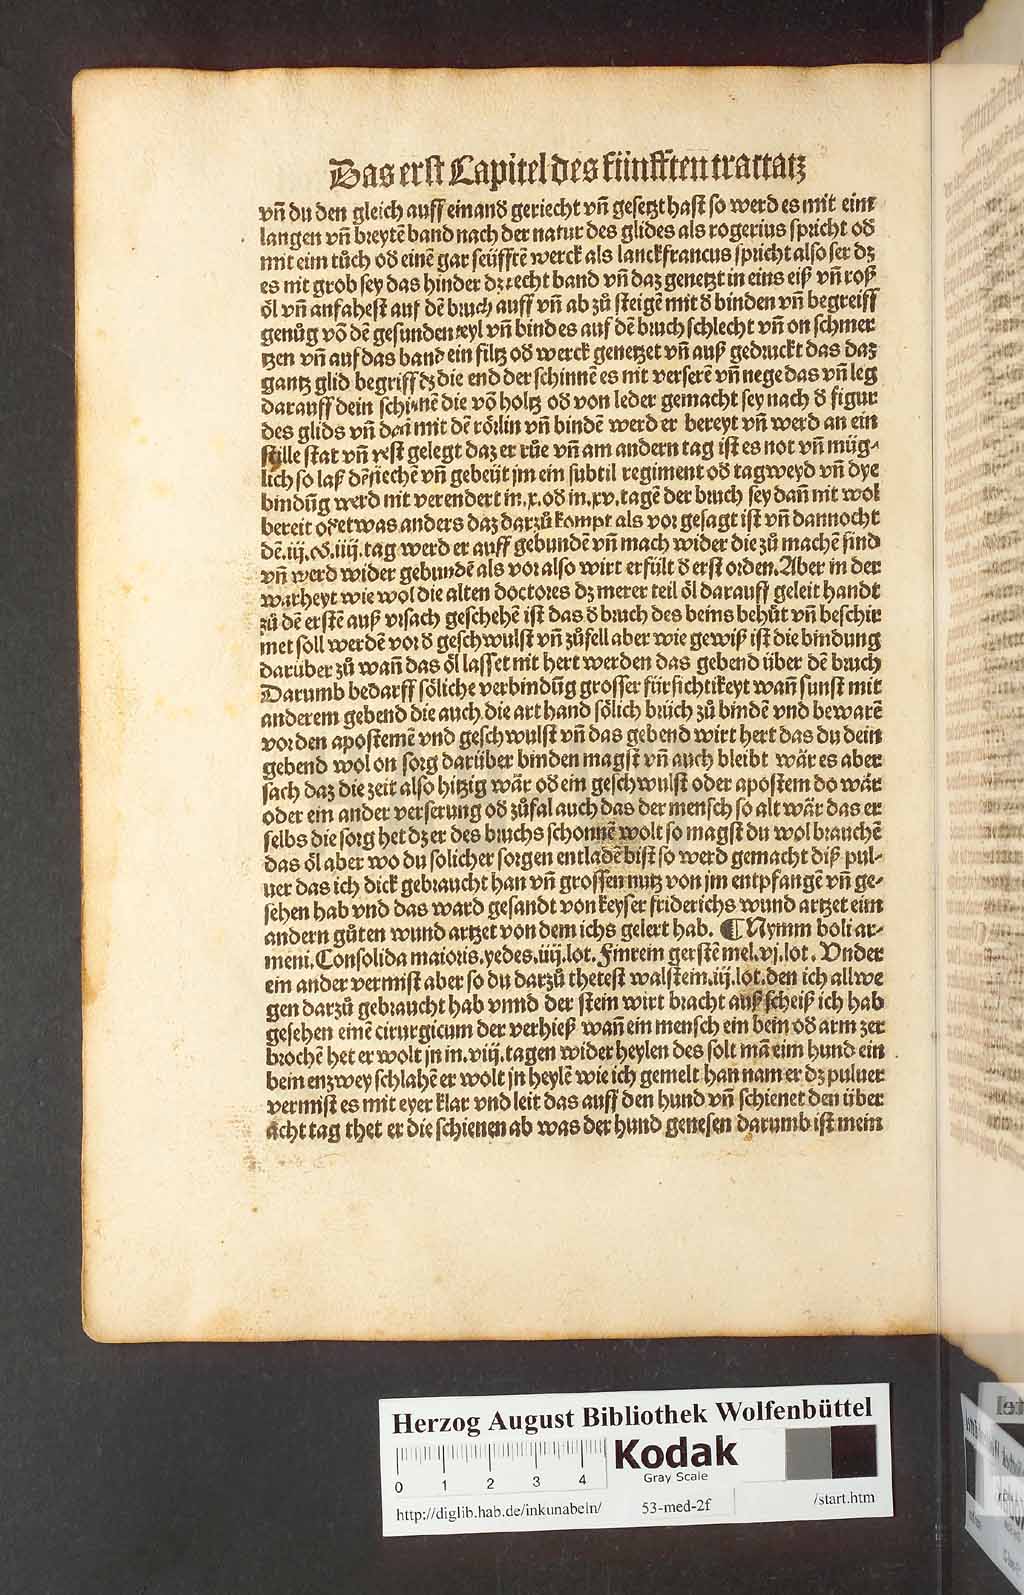 Das erst Capitel des fünfften tractatz
vñ du den gleich auff einand geriecht vñ gesetzt hast so werd es mit eim
langen vñ breytẽ band nach der natur des glides als rogerius spricht od
mit eim tůch od einẽ gar seüfftẽ werck als lanckfrancus spricht also ser dz
es nit grob sey das hinder dz recht band vñ daz genetzt in eins eiß vñ roß
öl vñ anfahest auf dẽ bruch auff vñ ab zů steigẽ mit d binden vñ begreiff
genůg võ dẽ gesunden teyl vñ bind es auf dẽ bruch schlecht vñ on schmer
tzen vñ auf das band ein filtz od werck genetzet vñ auß gedruckt das daz
gantz glid begriff dz die end der schinnẽ es nit verserẽ vñ nege das vñ leg
darauff dein schinnẽ die võ holtz od von leder gemacht sey nach d figur
des glids vñ den mit dẽ rörlin vñ bindẽ werd er bereyt vñ werd an ein
stille stat vñ rest gelegt daz er růe vñ am andern tag ist es not vñ müg-
lich so laß dẽ siechẽ vñ gebeüt jm ein subtil regiment od tagweyd vñ dye
bindũg werd nit verendert in .x. od in .xv. tagẽ der bruch sey dañ nit wol
bereit od etwas anders daz darzů kompt als vor gesagt ist vñ dannocht
dẽ .iij. od .iiij. tag werd er auff gebundẽ vñ mach wider die zů machẽ sind
vñ werd wider gebundẽ als vor also wirt erfült d erst orden. Aber in der
warheyt wie wol die alten doctores dz merer teil öl darauff geleit handt
zů dẽ erstẽ auß vrsach geschehẽ ist das d bruch des beins behůt vñ beschir
met soll werdẽ vor d geschwulst vñ zůfell aber wie gewiß ist die bindung
darüber zů wañ das öl lasset nit hert werden das gebend über dẽ bruch
Darumb bedarff söliche verbindũg grosser fürsichtikeyt wañ sunst mit
anderem gebend die auch die art hand sölich brüch zů bindẽ vnd bewarẽ
vor den apostemẽ vnd geschwulst vñ das gebend wirt hert das du dein
gebend wol on sorg darüber binden magst vñ auch bleibt wär es aber
sach daz die zeit also hitzig wär od ein geschwulst oder apostem do wär
oder ein ander verserung od zůfal auch das der mensch so alt wär das er
selbs die sorg het dz er des bruchs schonnẽ wolt so magst du wol brauchẽ
das öl aber wo du solicher sorgen entladẽ bist so werd gemacht diß pul-
uer das ich dick gebraucht han vñ grossen nutz von jm entpfangẽ vñ ge-
sehen hab vnd das ward gesandt von keyser friderichs wund artzet eim
andern gůten wund artzet von dem ichs gelert hab. ¶ Nymm boli ar-
meni. Consolida maioris. yedes .iiij. lot. Finrem gerstẽ mel .vj. lot. Vnder
ein ander vermist aber so du darzů thetest walstein .iij. lot. den ich allwe
gen darzů gebraucht hab vnnd der stein wirt bracht auß scheiß ich hab
gesehen einẽ cirurgicum der verhieß wañ ein mensch ein bein od arm zer
brochẽ het er wolt jn in .viij. tagen wider heylen des solt mã eim hund ein
bein enzwey schlahẽ er wolt jn heylẽ wie ich gemelt han nam er dz puluer
vermist es mit eyer klar vnd leit das auff den hund vñ schienet den über
acht tag thet er die schienen ab was der hund genesen darumb ist mein
Herzog August Bibliothek Wolfenbüttel
0 1 2 3 4
Kodak
Gray Scale
http://diglib.hab.de/inkunabeln/ 53-med-2f /start.htm